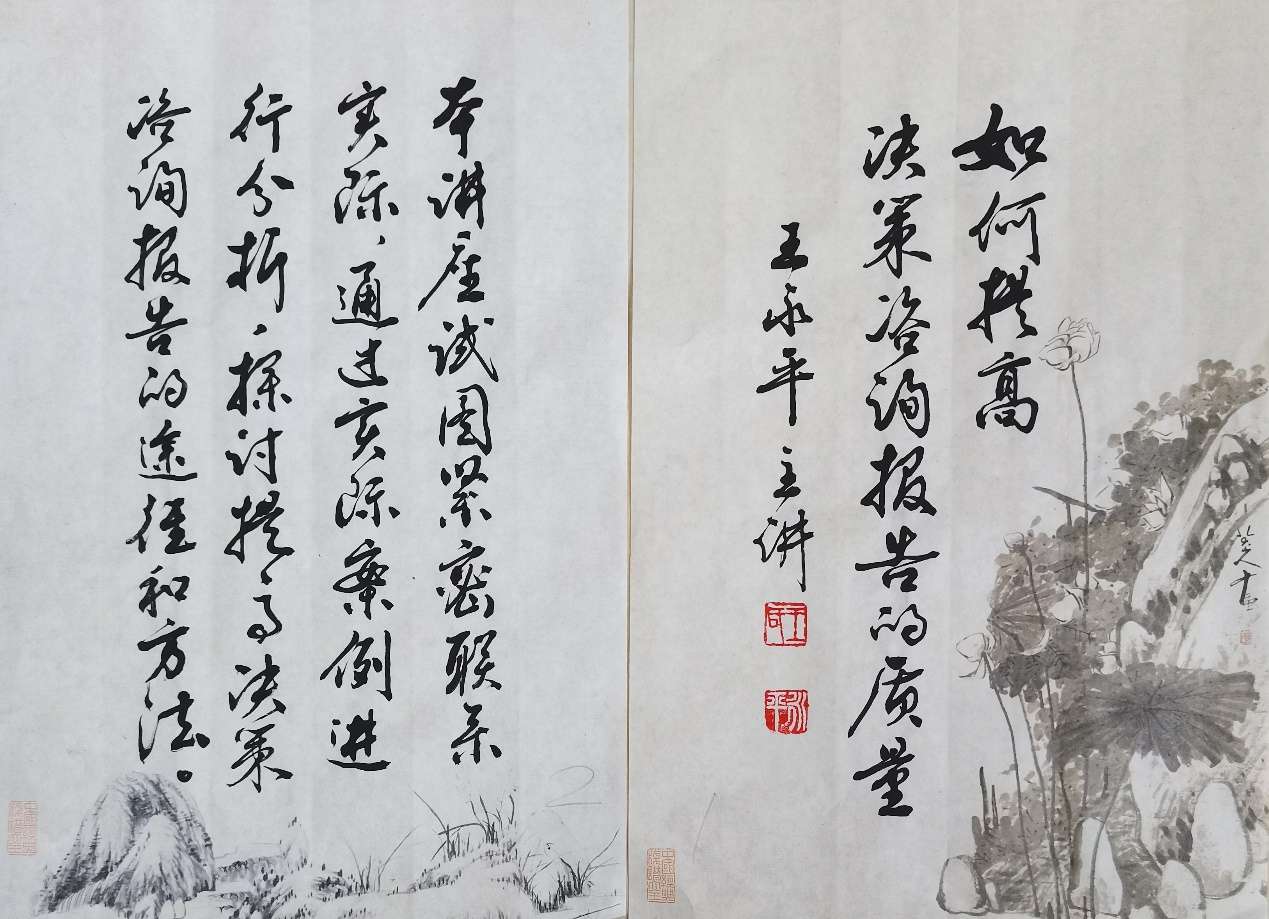 如何提高
决策咨询报告的质量
王永平主讲
本讲座试图紧密联系
实际，通过实际案例进
行分析，探讨提高决策
咨询报告的途径和方法。
八大山人画